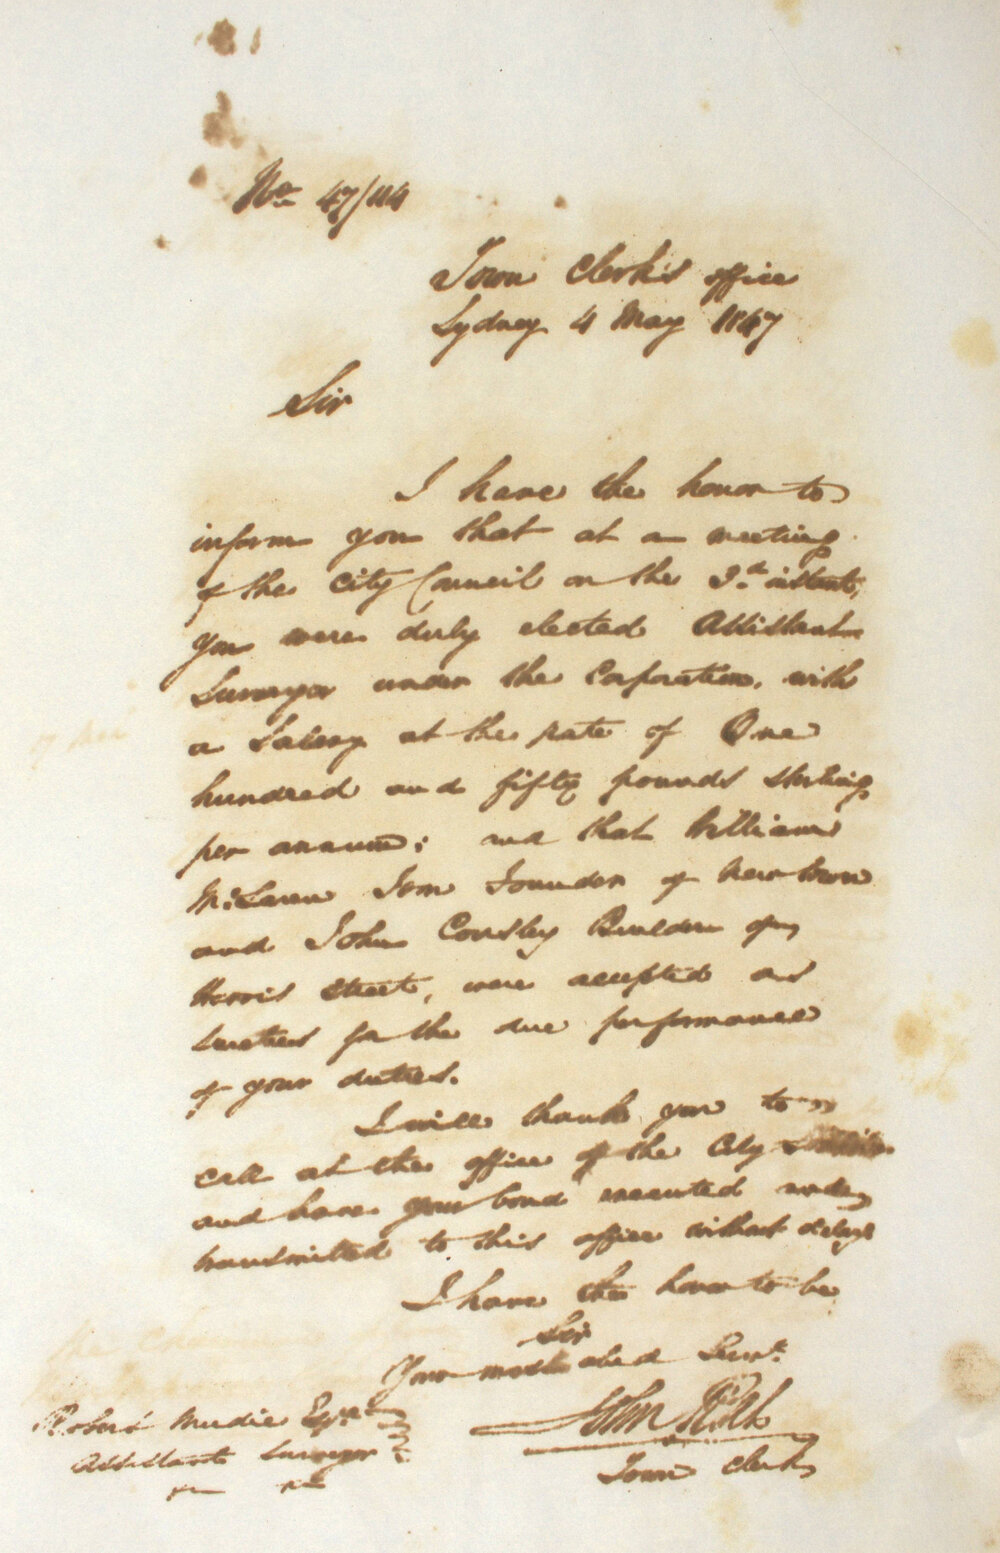 No 47/114
Town Clerk's office
Sydney 4 May 1847
Sir
I have the honor to
inform you that at a meeting
of the City Council on the 3d instant,
you were duly elected Assistant
Surveyor under the Corporation, with
a Salary at the rate of One
hundred and fifty pounds sterling
per annum; and that William
McLaren Iron Founder of Newtown
and John Cousley Builder of
Harris Street, were accepted as
Sureties for the due performance
of your duties.
I will thank you to
call at the office of the City
and have your bond executed and
transmitted to this office without delay
I have the honor to be
Sir
Your most obed Servt.
John Risk
Town Clerk
Robert Mudie Esqre
Assistant Surveyor